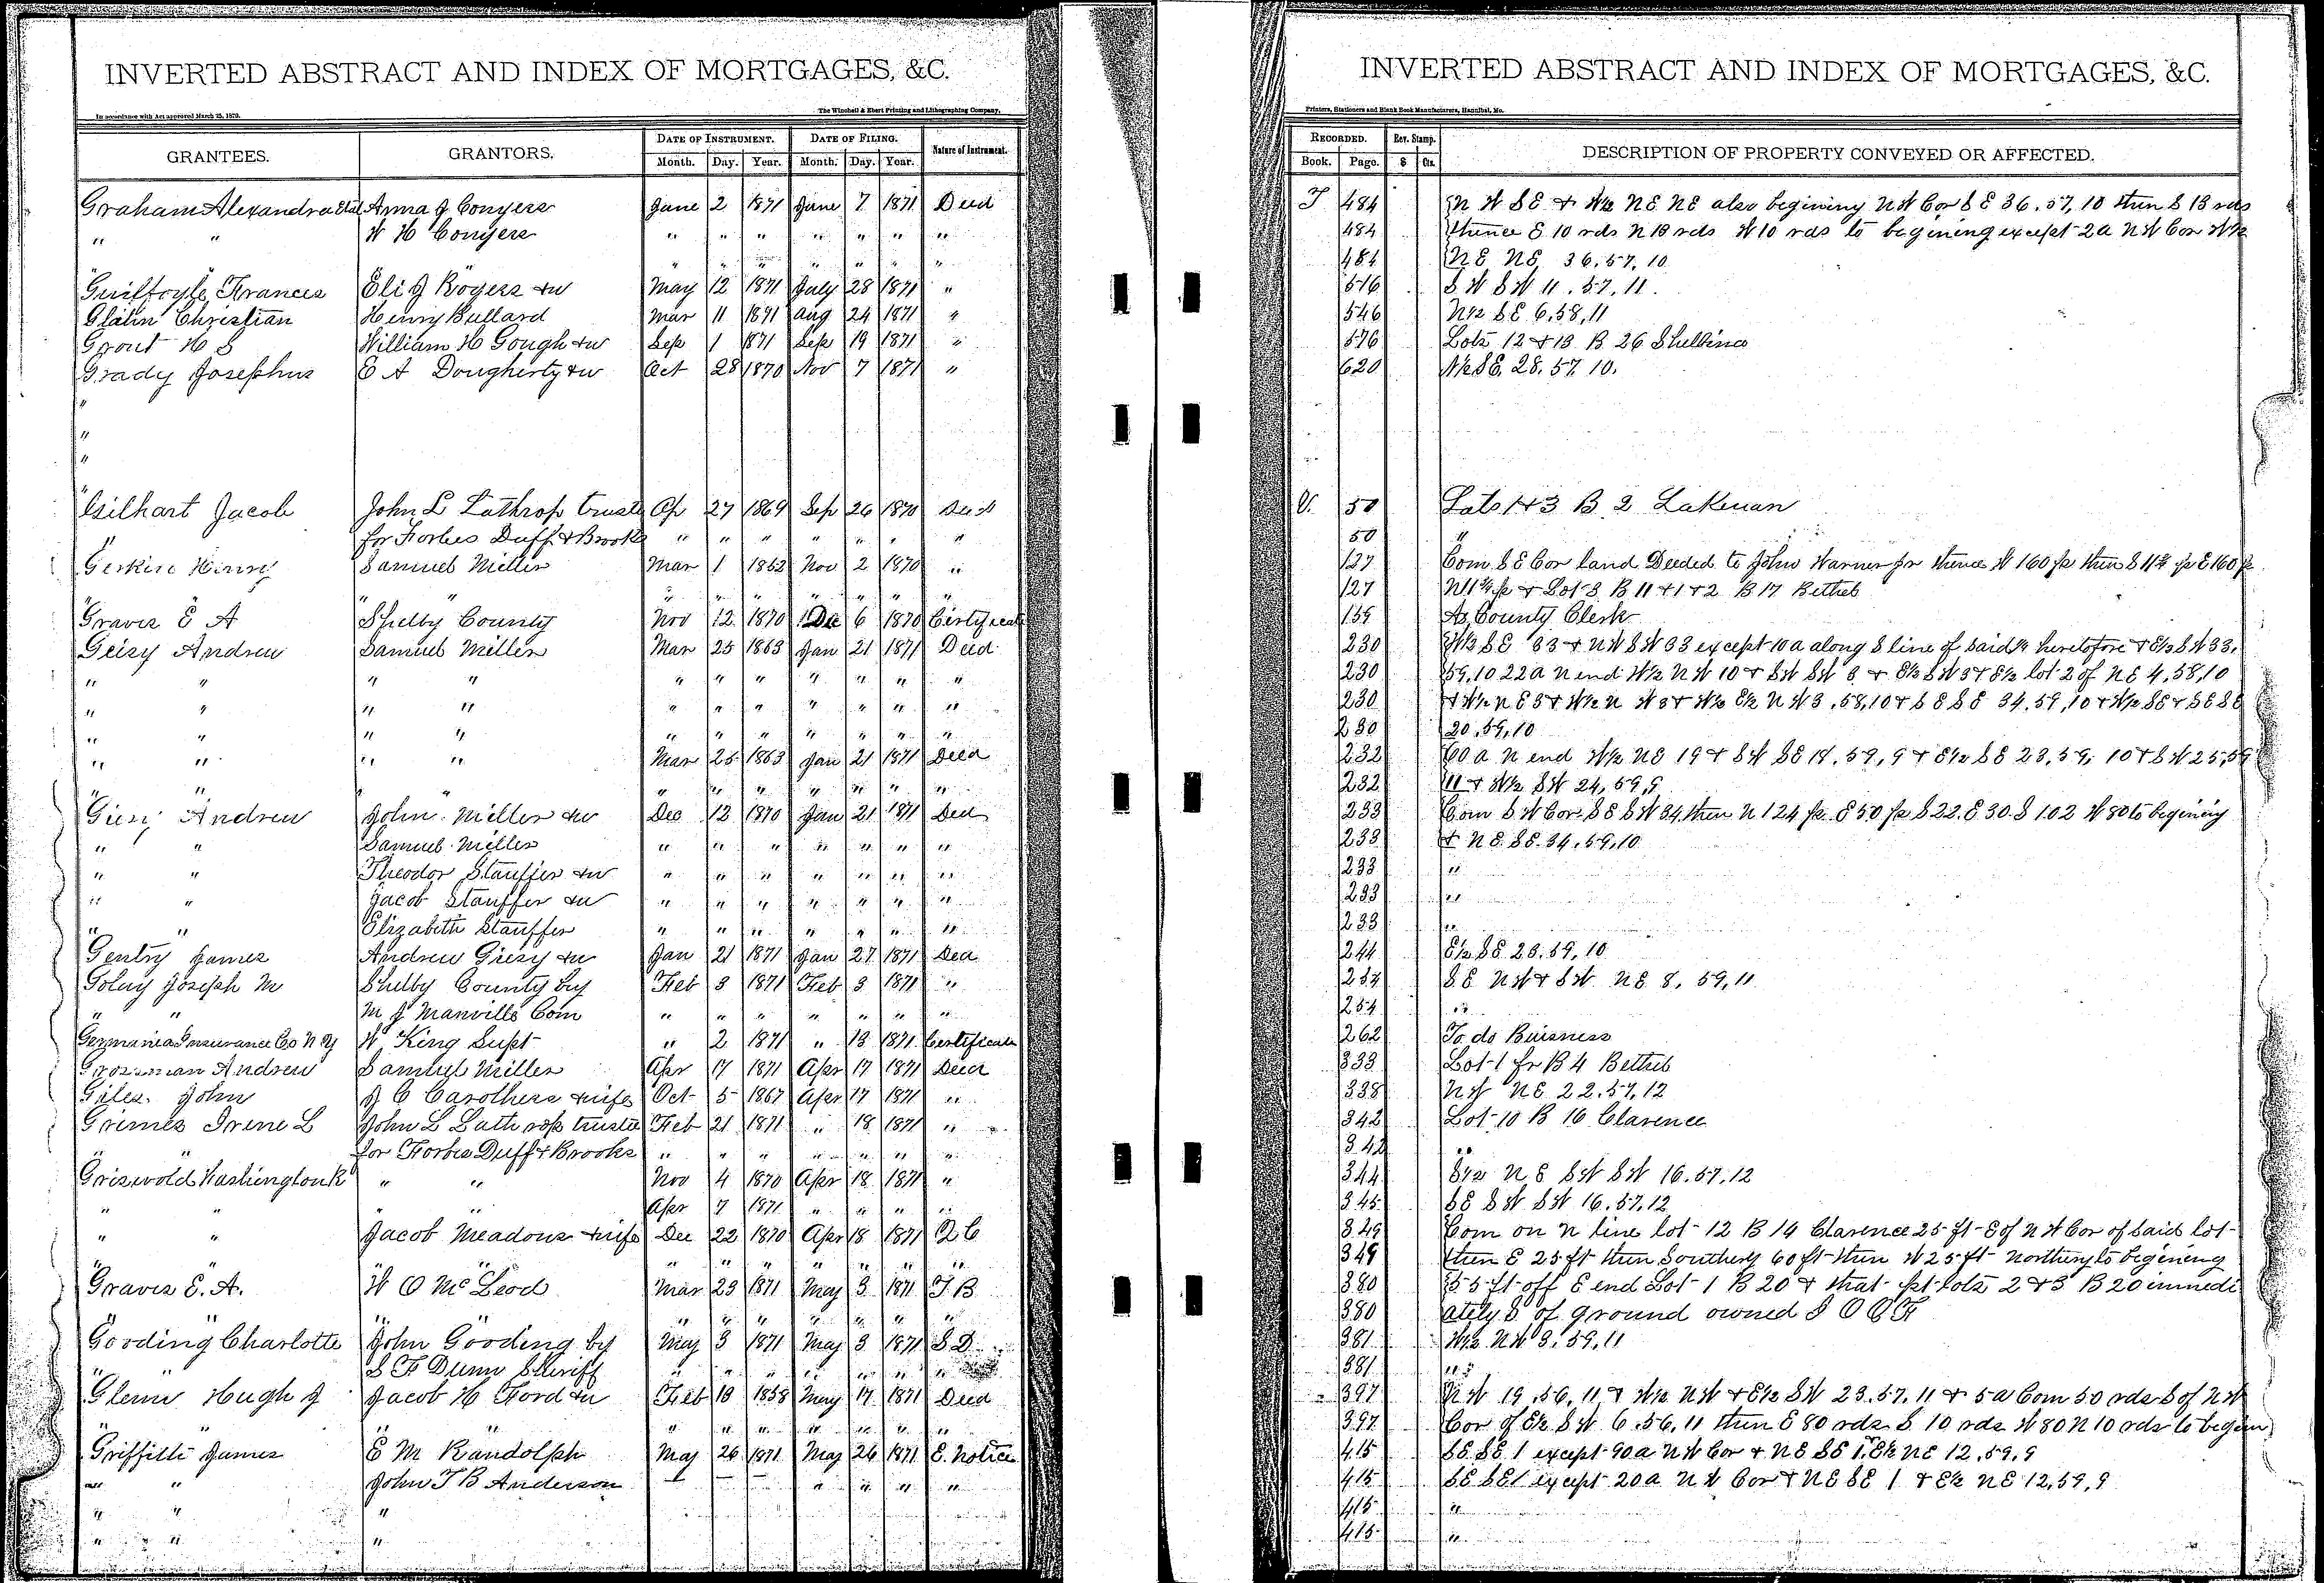 INVERTED ABSTRACT AND INDEX OF MORTGAGES, &C.
In accordance with Act approved March 25, 1873. The Winchell & Ebert Printing and Lithographing Company,
GRANTEES. GRANTORS. DATE OF INSTRUMENT. DATE OF FILING. Nature of Instrument.
Month. Day. Year. Month. Day. Year.
Graham Alexandra etal Anna J Conyers June 2 1871 June 7 1871 Deed
" " W H Conyers " " " " " " "
" " " " " " "
Guilfoyle Frances Eli J Rogers &w May 12 1871 July 28 1871 "
Glahn Christian Henry Bullard Mar 11 1871 Aug 24 1871 "
Grout H S William H Gough &w Sep 1 1871 Sep 19 1871 "
Grady Josephus E A Dougherty &w Oct 28 1870 Nov 7 1871 "
"
"
"
Gilhart Jacob John L Lathrop truste Ap 27 1869 Sep 26 1870 Deed
" for Forbes Duff & Brooks " " " " " " "
Gerkin Henry Samuel Miller Mar 1 1862 Nov 2 1870 "
" " " " " " "
Graves E A Shelby County Nov 12 1870 Dec 6 1870 Certificate
Geisy Andrew Samuel Miller Mar 25 1863 Jan 21 1871 Deed
" " " " " " " " " " "
" " " " " " " " " " "
" " " " " " " " " " "
" " " " Mar 25 1863 Jan 21 1871 Deed
" " " " " " " "
Giesy Andrew John Miller &w Dec 12 1870 Jan 21 1871 Deed
" " Samuel Miller " " " " " " "
" " Theodor Stauffer &w " " " " " " "
" " Jacob Stauffer &w " " " " " " "
" " Elizabeth Stauffer " " " " " " "
Gentry James Andrew Giesy &w Jan 21 1871 Jan 27 1871 Deed
Golay Joseph M Shelby County by Feb 3 1871 Feb 3 1871 "
" " M J Manville Com " " " " " " "
Germania Insurance Co N Y W King Supt " 2 1871 " 13 1871 Certificate
Grosman Andrew Samuel Miller Apr 17 1871 Apr 17 1871 Deed
Giles John J C Carothers &wife Oct 5 1867 Apr 17 1871 "
Grimes Irene L John L Lathrop trustee Feb 21 1871 " 18 1871 "
" " for Forbes Duff & Brooks " " " " " " "
Griswold Washington K " " Nov 4 1870 Apr 18 1871 "
" " " " Apr 7 1871 " " " "
" " Jacob Meadows &wife Dec 22 1870 Apr 18 1871 Q C
" " " " " " " "
Graves E. A. W O McLeod Mar 23 1871 May 3 1871 T B
" " " " " " " " "
Gooding Charlotte John Gooding by May 3 1871 May 3 1871 S D
" " S F Dunn Sheriff " " " " " " "
Glenn Hugh J Jacob H Ford &w Feb 13 1858 May 17 1871 Deed
" " " " " " " " "
Griffith James E M Randolph May 26 1871 May 26 1871 E. Notice
" " John T B Anderson " " " "
" " "
" " "
INVERTED ABSTRACT AND INDEX OF MORTGAGES, &C.
Printers, Stationers and Blank Book Manufacturers, Hannibal, Mo.
RECORDED. Rev. Stamp. DESCRIPTION OF PROPERTY CONVEYED OR AFFECTED.
Book. Page. $ Cts.
T 484 N W SE & W½ NE NE also begining NW Cor SE 36, 57, 10 then S 13 rds
484 thence E 10 rds N 13 rds W 10 rds to begining except 2a NW Cor W½
484 NE NE 36, 57, 10
516 S W S W 11, 57, 11.
546 N½ SE 6, 58, 11
576 Lots 12 & 13 B 26 Shelbina
620 W½ SE. 28, 57, 10.
V. 50 Lots 1 & 3 B 2 Lakenan
50 "
127 Com SE Cor land Deeded to John Warner Jr thence W 160 p then S 11¾ p E 160 p
127 N 11¾ p & Lot 8 B 11 & 1 & 2 B 17 Bethel
155 As County Clerk
230 W½ SE 33 & NW SW 33 except 10a along S line of said ¼ heretofore & E½ SW 33,
230 59, 10 22a N end W½ NW 10 & SW SW 3 & E½ SW 3 & E½ lot 2 of NE 4, 58, 10
230 & W½ NE 3 & W½ N W 3 & W½ E½ NW 3, 58, 10 & SE SE 34, 59, 10 & W½ SE & SE SE
230 20, 59, 10
232 60 a N end W½ NE 19 & SW SE 18, 59, 9 & E½ SE 23, 59, 10 & SW 25, 59
232 11 & W½ SW 24, 59, 9
233 Com SW Cor SE SW 34 then N 124 p E 50 p S 22. E 30. S 102 W 80 to begining
233 & NE SE 34, 59, 10
233 "
233 "
233 "
244 E½ SE 23, 59, 10
254 SE NW & SW NE 8, 59, 11
254 "
262 To do Buisness
333 Lot 1 fr B 4 Bethel
338 NW NE 22, 57, 12
342 Lot 10 B 16 Clarence
342 "
344 E½ NE SW SW 16, 57, 12
345 SE SW SW 16, 57, 12
349 Com on N line lot 12 B 14 Clarence 25 ft E of NW Cor of said lot
349 then E 25 ft then Southerly 60 ft then W 25 ft Northerly to begining
380 55 ft off E end Lot 1 B 20 & that pt lots 2 & 3 B 20 immedi
380 ately S of ground owned I O O F
381 W½ NW 3, 59, 11
381 "
397 N W 19, 56, 11 & W½ NW & E½ SW 23, 57, 11 & 5a Com 50 rds S of NW
397 Cor of E½ SW 6, 56, 11 then E 80 rds S 10 rds W 80 N 10 rds to begin
415 SE SE 1 except 90a NW Cor & NE SE 1, E½ NE 12, 59, 9
415 SE SE 1 except 20a NW Cor & NE SE 1 & E½ NE 12, 59, 9
415 "
415 "